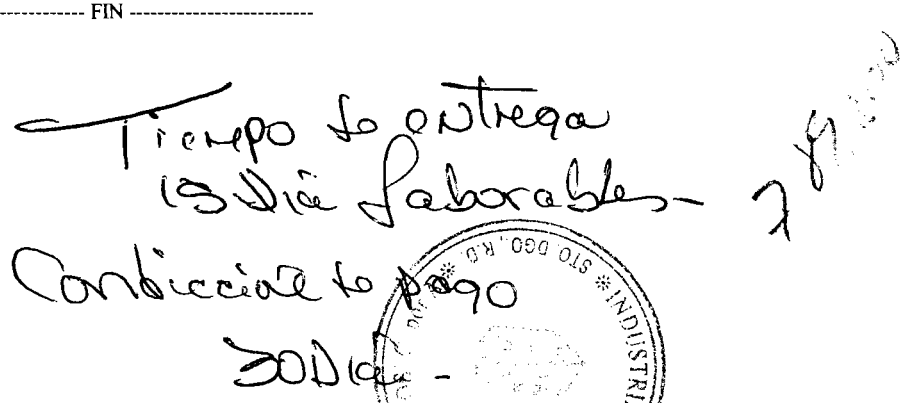 ------------ FIN ------------------------
Tiempo de entrega
15 Dia Laborables-
Condiccione de pago
30 Dia -
STO. DGO., R.D. * INDUSTRIA